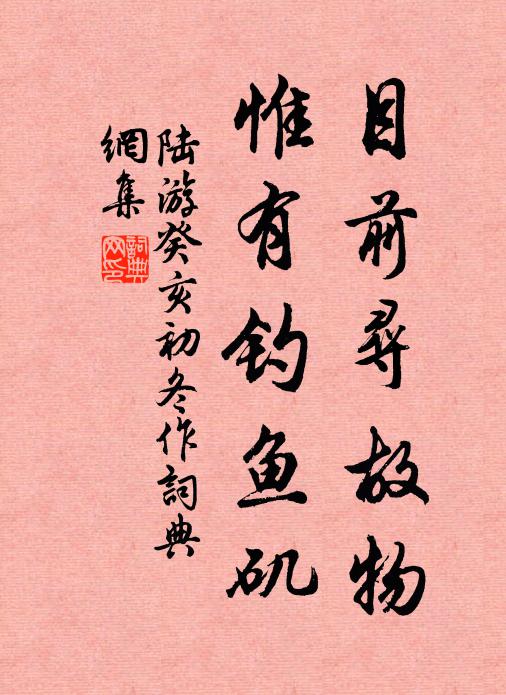 目前尋故物
惟有钓鱼矶
陆游癸亥初冬作詞典
網集
詞典网印